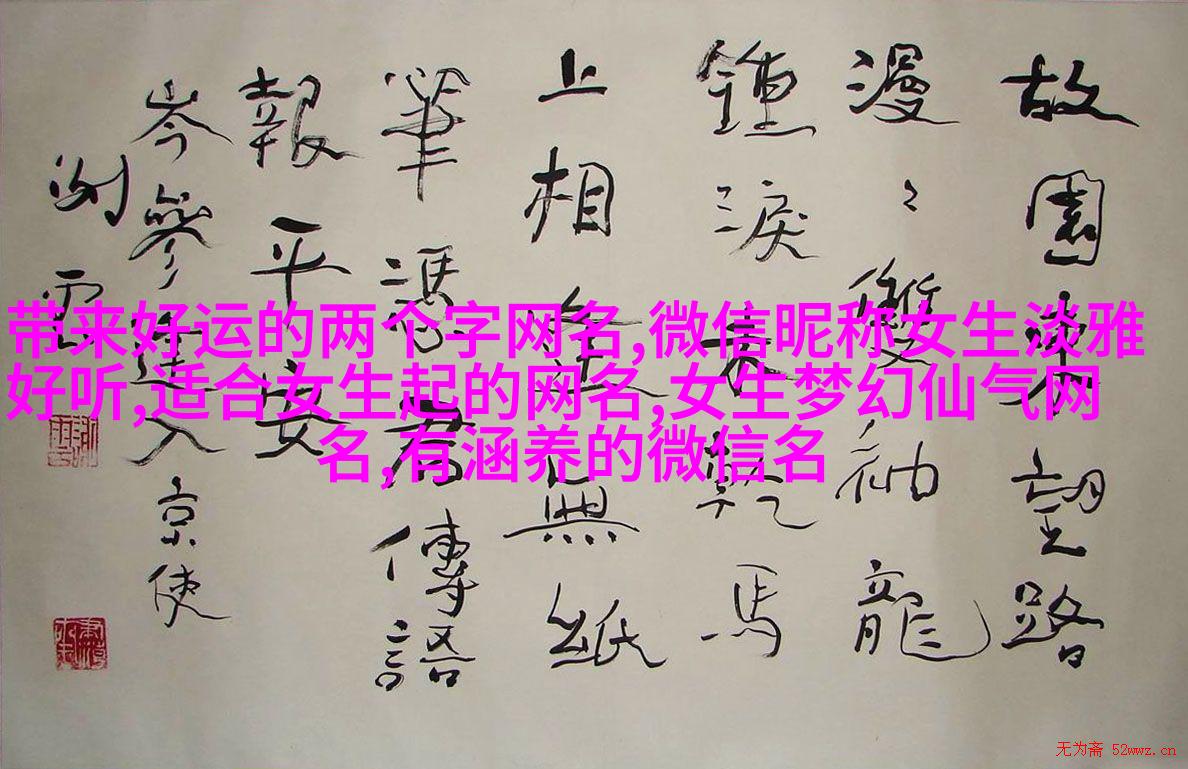 故園東望路
漫〻雙袖龍
鍾淚不乾馬
上相逢無紙
筆憑君傳語
報平安
岑參逢入京使
雲
带来好运的两个字网名,微信昵称女生淡雅
好听,适合女生起的网名,女生梦幻仙气网
名,有涵养的微信名
无为斋 52wwz.cn